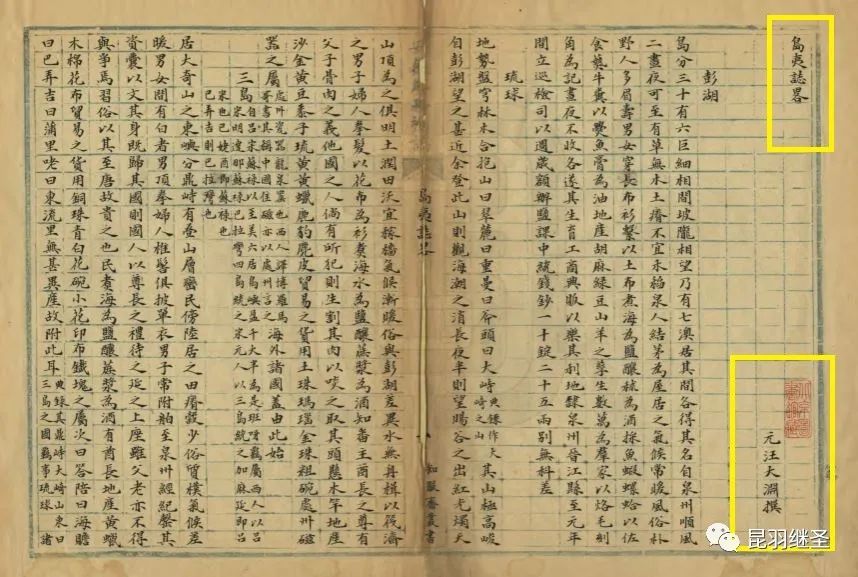 島夷誌畧
元汪大淵撰
彭湖
島分三十有六巨細相間坡隴相望乃有七澳居其間各得其名自泉州順風
二晝夜可至有草無木土瘠不宜禾稻泉人結茅為屋居之氣候常暖風俗朴
野人多眉壽男女穿長布衫繫以土布煮海為鹽釀秫為酒採魚蝦螺蛤以佐
食爇牛糞以爨魚膏為油地産胡麻緑豆山羊之孳生數萬為羣家以烙毛刻
角為記晝夜不收各遂其生育工商興販以樂其利地隸泉州晉江縣至元年
間立巡檢司以週歲額辦鹽課中統錢鈔一十錠二十五兩别無科差
琉球
地勢盤穹林木合抱山曰翠麓曰重曼曰斧頭曰大峙
其山極高峻
自彭湖望之甚近余登此山則觀海潮之消長夜半則望暘谷之出紅光燭天
島夷誌畧
知服齋叢書
山頂為之俱明土潤田沃宜稼穡氣候漸暖俗與彭湖差異水無舟楫以筏濟
之男子婦人拳髮以花布為衫煮海水為鹽釀蔗漿為酒知番主酋長之尊有
父子骨肉之義他國之人倘有所犯則生割其肉以啖之取其頭懸木竿地産
沙金黄豆黍子琉黄黄蠟鹿豹麂皮貿易之貨用土珠瑪瑙金珠粗碗處州磁
器之屬
海外諸國蓋由此始
三島
居大奇山之東嶼分鼎峙有疊山層巒民傍陸居之田瘠穀少俗質樸氣候差
暖男女間有白者男頂拳婦人椎髻俱披單衣男子常附舶至泉州經紀罄其
資囊以文其身既歸其國則國人以尊長之禮待之延之上座雖父老亦不得
與爭焉習俗以其至唐故貴之也民煮海為鹽釀蔗漿為酒有酋長地産黄蠟
木棉花布貿易之貨用銅珠青白花碗小花印布鐵塊之屬次曰答陪曰海贍
曰巴弄吉曰蒲里咾曰東流里無甚異産故附此耳
昆羽继圣